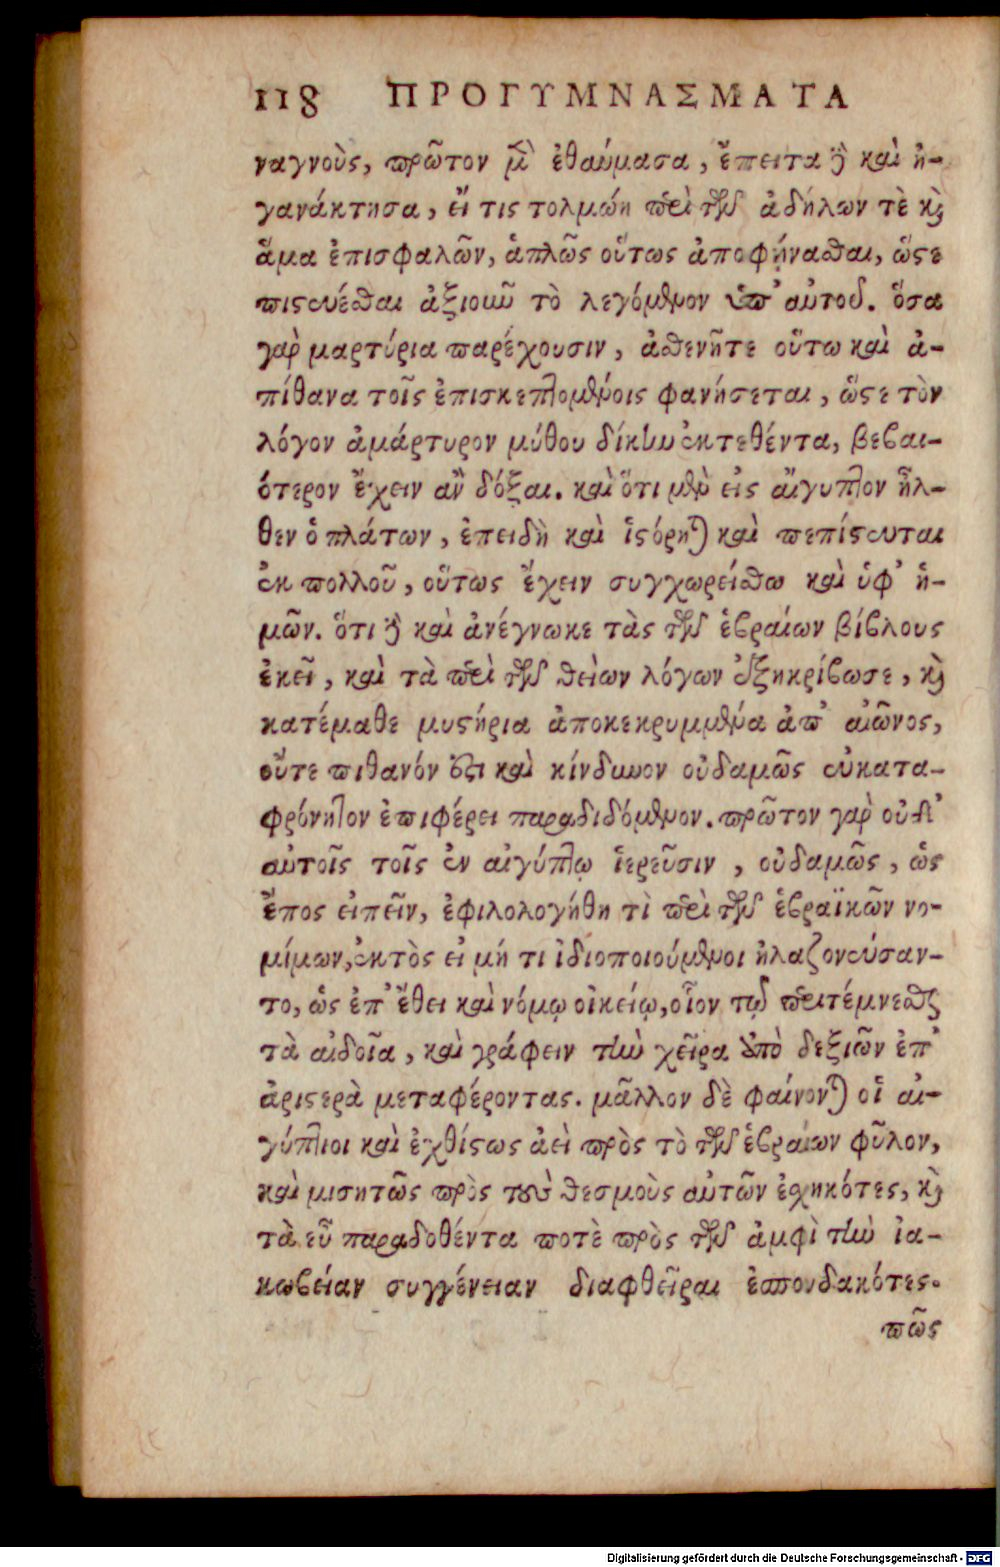 118 ΠΡΟΓΥΜΝΑΣΜΑΤΑ
ναγνοὺς, πρῶτον μὲν ἐθαύμασα, ἔπειτα δὲ καὶ ἠ-
γανάκτησα, εἴ τις τολμώη περὶ τῶν ἀδήλων τὲ καὶ
ἅμα ἐπισφαλῶν, ἁπλῶς οὕτως ἀποφήνασθαι, ὥστε
πιστεύεσθαι ἀξιοῦν τὸ λεγόμενον ὑπ' αὐτοῦ. ὅσα
γὰρ μαρτύρια παρέχουσιν, ἀσθενῆτε οὕτω καὶ ἀ-
πίθανα τοῖς ἐπισκεπτομένοις φανήσεται, ὥστε τὸν
λόγον ἀμάρτυρον μύθου δίκην ἐκτεθέντα, βεβαι-
ότερον ἔχειν ἂν δόξαι. καὶ ὅτι μὲν εἰς αἴγυπτον ἦλ-
θεν ὁ πλάτων, ἐπειδὴ καὶ ἱστόρηται καὶ πεπίστευται
ἐκ πολλοῦ, οὕτως ἔχειν συγχωρείσθω καὶ ὑφ' ἡ-
μῶν. ὅτι δὲ καὶ ἀνέγνωκε τὰς τῶν ἑβραίων βίβλους
ἐκεῖ, καὶ τὰ περὶ τῶν θείων λόγων ἐξηκρίβωσε, καὶ
κατέμαθε μυστήρια ἀποκεκρυμμένα ἀπ' αἰῶνος,
οὔτε πιθανόν ἐστι καὶ κίνδυνον οὐδαμῶς εὐκατα-
φρόνητον ἐπιφέρει παραδιδόμενον. πρῶτον γὰρ οὐδ'
αὐτοῖς τοῖς ἐν αἰγύπτῳ ἱερεῦσιν, οὐδαμῶς, ὡς
ἔπος εἰπεῖν, ἐφιλολογήθη τὶ περὶ τῶν ἑβραϊκῶν νο-
μίμων, ἐκτὸς εἰ μή τι ἰδιοποιούμενοι ἠλαζονεύσαν-
το, ὡς ἐπ' ἔθει καὶ νόμῳ οἰκείῳ, οἷον τῷ περιτέμνεσθαι
τὰ αἰδοῖα, καὶ γράφειν τὴν χεῖρα ὑπὸ δεξιῶν ἐπ'
ἀριστερὰ μεταφέροντας. μᾶλλον δὲ φαίνονται οἱ αἰ-
γύπτιοι καὶ ἐχθίστως ἀεὶ πρὸς τὸ τῶν ἑβραίων φῦλον,
καὶ μισητῶς πρὸς τοὺς θεσμοὺς αὐτῶν ἐσχηκότες, καὶ
τὰ εὖ παραδοθέντα ποτὲ πρὸς τῶν ἀμφὶ τὴν ἰα-
κωβείαν συγγένειαν διαφθεῖραι ἐσπουδακότες.
πῶς
Digitalisierung gefördert durch die Deutsche Forschungsgemeinschaft - DFG